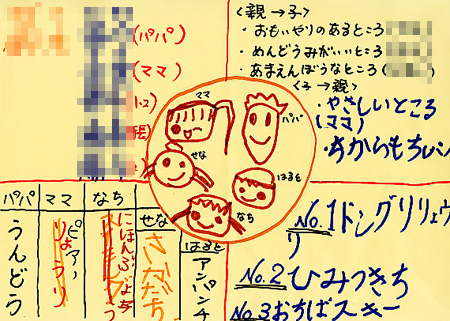 (パパ)
(ママ)
<親→子>
・おもいやりのあるところ
・めんどうみがいいところ
・あまえんぼうなところ
<子→親>
・やさしいところ
(ママ)
・ちからもち
ママ
パパ
せな
はると
なち
パパ
うんどう
ママ
ピアノ
りょうり
なち
せな
さかだち
はると
アンパンチ
No.1ドングリリュウ
リ
No.2ひみつきち
No.3おちばスキー